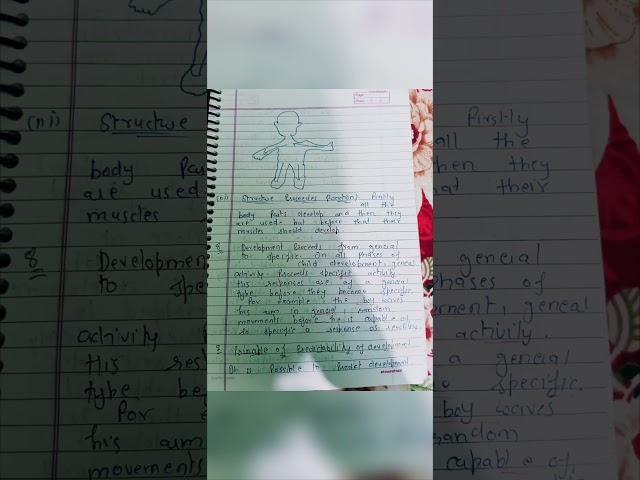 (ni) Structure Proceedes function: Firstly
all the
body Parts develop and then they
are used but before that their
muscles should develop.
8 Development Proceeds from general
to specific. In all Phases of
child development, geneal
activity Proceeds specific activity.
this responses are of a general
type before they become specific.
For example; the boy waves
his arm in general, random
movements before he is capable of,
so specific a response as reaching
9 Principle of Predictability of development
It is Possible to Predict development